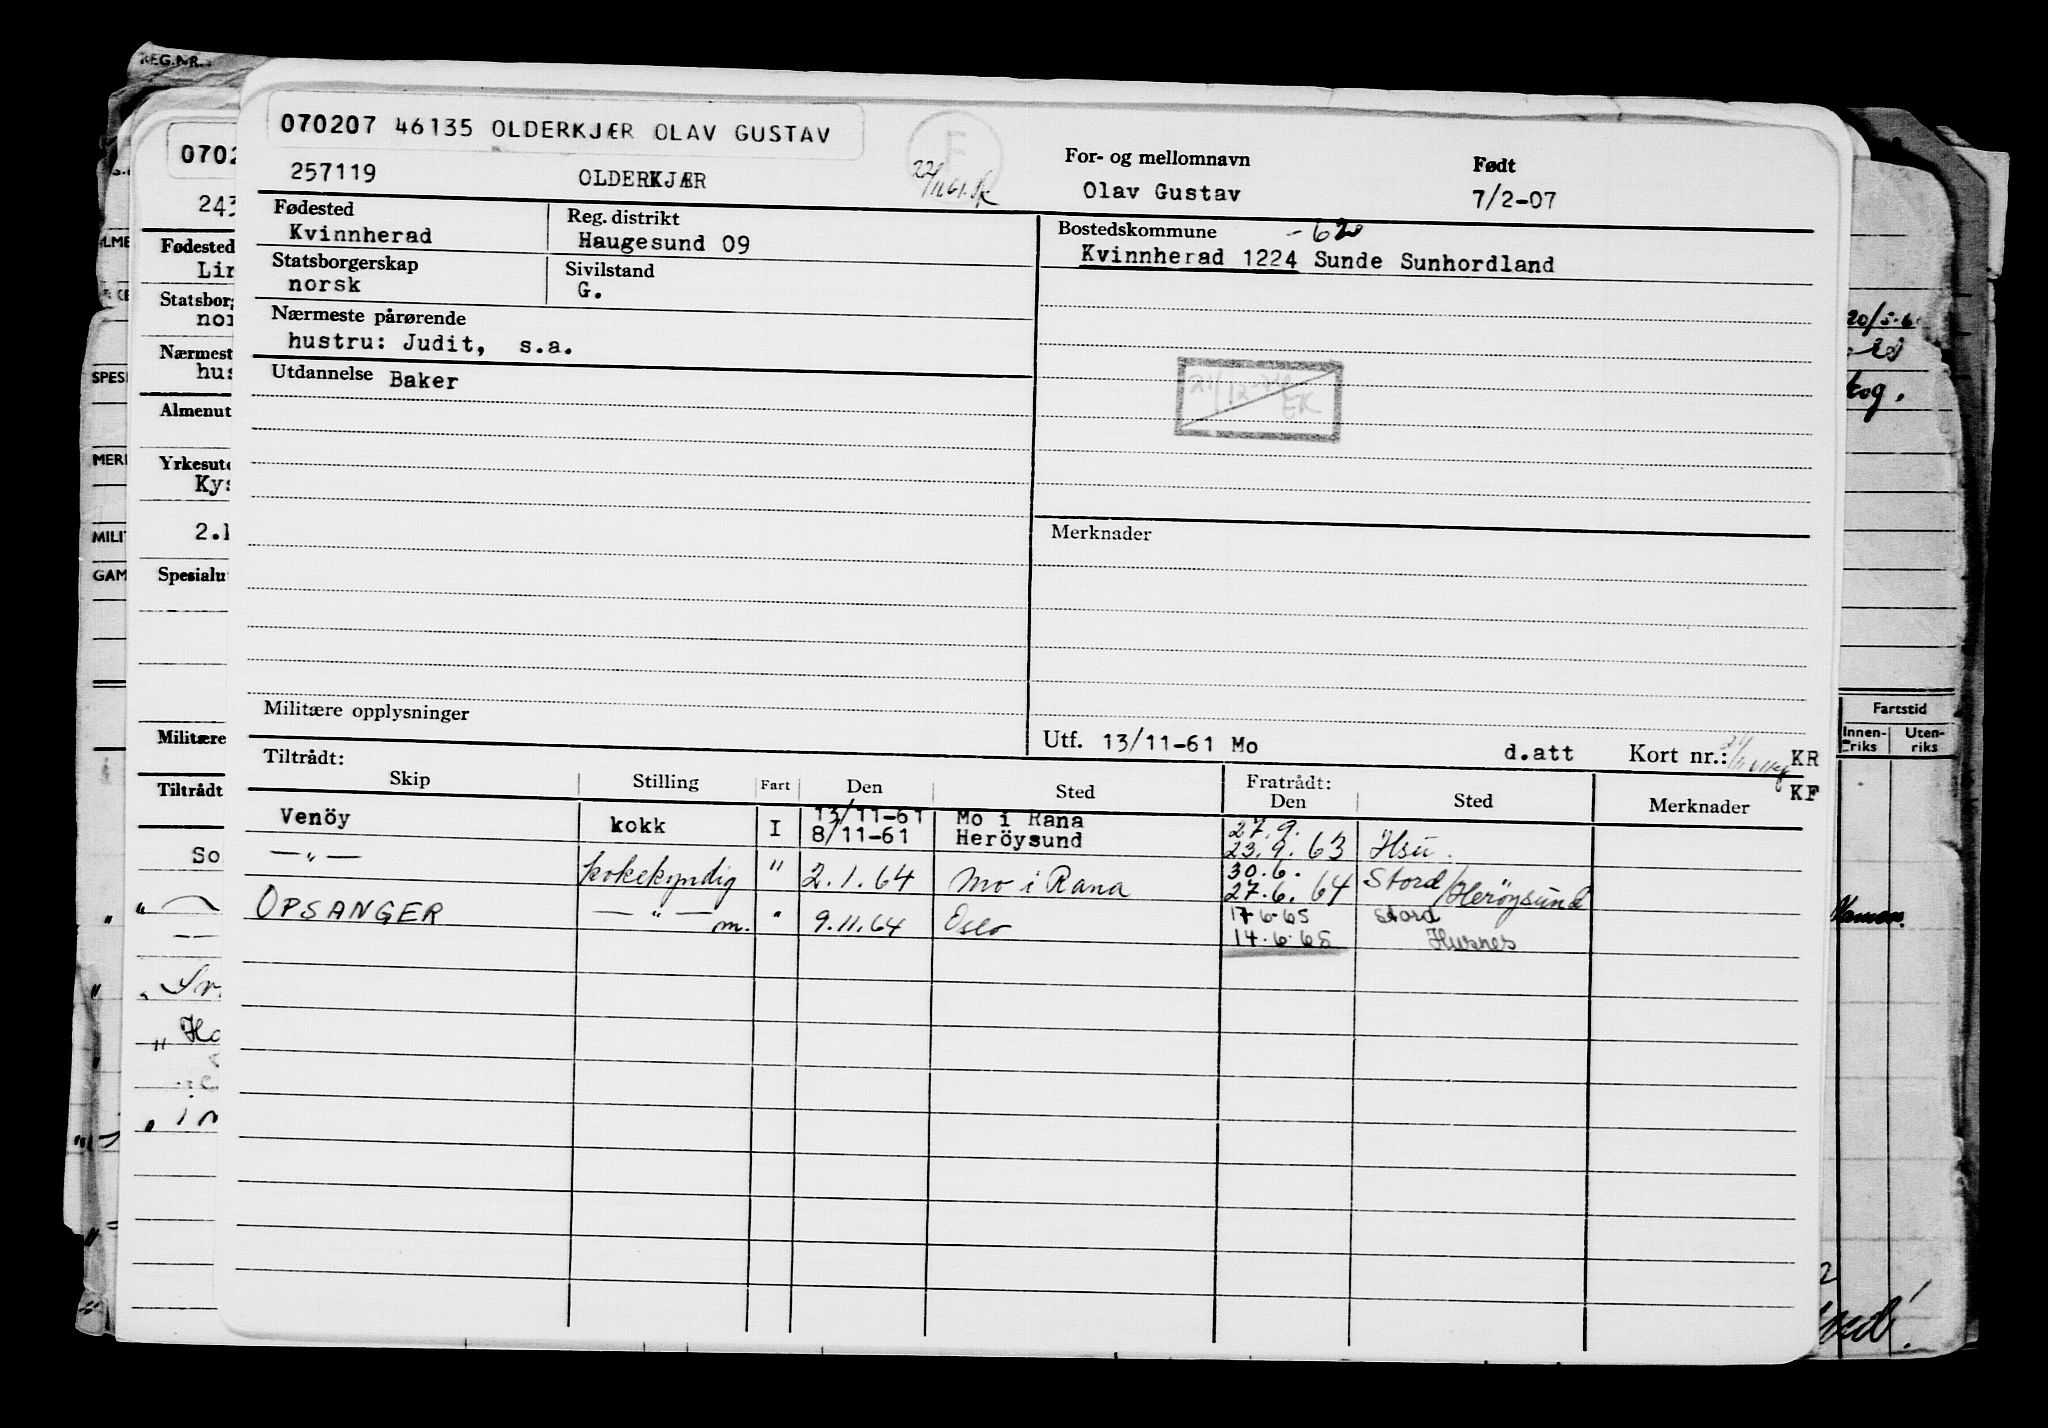 REG.NR.
070207 46135 OLDERKJÆR OLAV GUSTAV
F
257119 OLDERKJÆR
For- og mellomnavn Født
Olav Gustav 7/2-07
Fødested Reg. distrikt
Kvinnherad Haugesund 09
Bostedskommune -620
Kvinnherad 1224 Sunde Sunhordland
Statsborgerskap Sivilstand
norsk G.
Nærmeste pårørende
hustru: Judit, s.a.
Utdannelse Baker
Merknader
Militære opplysninger
Utf. 13/11-61 Mo d.att Kort nr.: KR
KF
Tiltrådt: Fratrådt:
Skip Stilling Fart Den Sted Den Sted Merknader
Venöy kokk I 13/11-61 Mo i Rana 27.9.
8/11-61 Heröysund 23.9.63 Hsu.
—"— kokekyndig " 2.1.64 Mo i Rana 30.6. Stord/
27.6.64 Heröysund
OPSANGER —"— m. " 9.11.64 Oslo 17-6-65 Stord
14.6.65 Husnes
0702
243
Fødested
Lin
Statsborg
nor
Nærmest
hus
Almenut
Yrkesut
Kys
2.
Spesialu
Militære
Tiltrådt
So
Ha
SPESI
MERI
MILIT
GAM
20/5-6
tog.
Fartstid
Innen-
riks
Uten-
riks